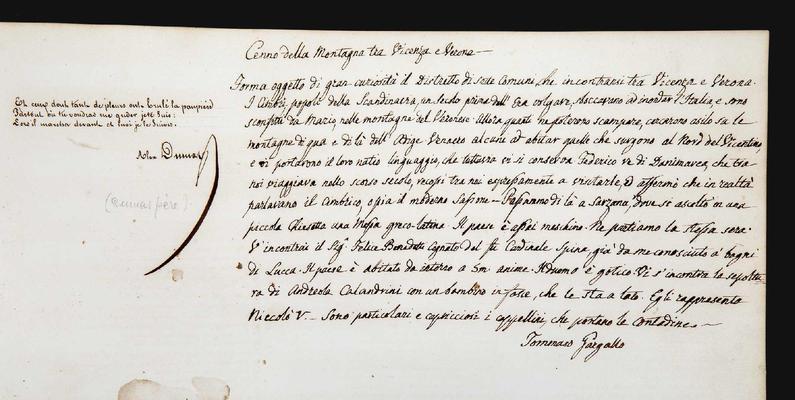 Et ceux dont tant de pleurs ont brulé la paupière
Partout où tu voudras me guider je te suis:
Dieu marcha devant et suis je le suivrai.
Alex Dumas
(Dumas père)
Cenno della Montagna tra Vicenza e Verona —
Forma oggetto di gran curiosità il Distretto di sette Comuni, che incontransi tra Vicenza e Verona.
I Cimbri, popoli della Scandinavia, un secolo prima dell' Era volgare, sboccarono ad inondar l'Italia, e sono
sconfitti da Mario, nelle montagne del Veronese. Allora quanti ne poterono scampare, cercarono asilo su le
montagne di qua e di là dell' Adige. Vennero alcuni ad abitar quelle che surgono al Nord del Vicentino,
e vi portarono il loro natio linguaggio, che tuttora vi si conserva. Federico re di Danimarca, che tra
noi viaggiava nello scorso secolo, recossi tra noi espressamente a visitarle, ed affermò che in realtà
parlavano il Cimbrico, ossia il moderno Sassone — Passammo di là a Sarzana, dove si ascoltò in una
piccola Chiesetta una Messa greco-latina. Il paese è assai meschino. Ne partiamo la stessa sera.
V'incontrai il Sig. Felice Benedetti Cognato del fu Cardinale Spina, già da me conosciuto a' bagni
di Lucca. Il paese è abitato da intorno a 5m. anime. Il duomo è gotico. Vi s'incontra la sepoltu
ra di Andreola Calandrini con un bambino in fasce, che le sta a lato. Egli rappresenta
Niccolò V. — Sono particolari e capricciosi i cappellini, che portano le Contadine —
Tommaso Gargallo